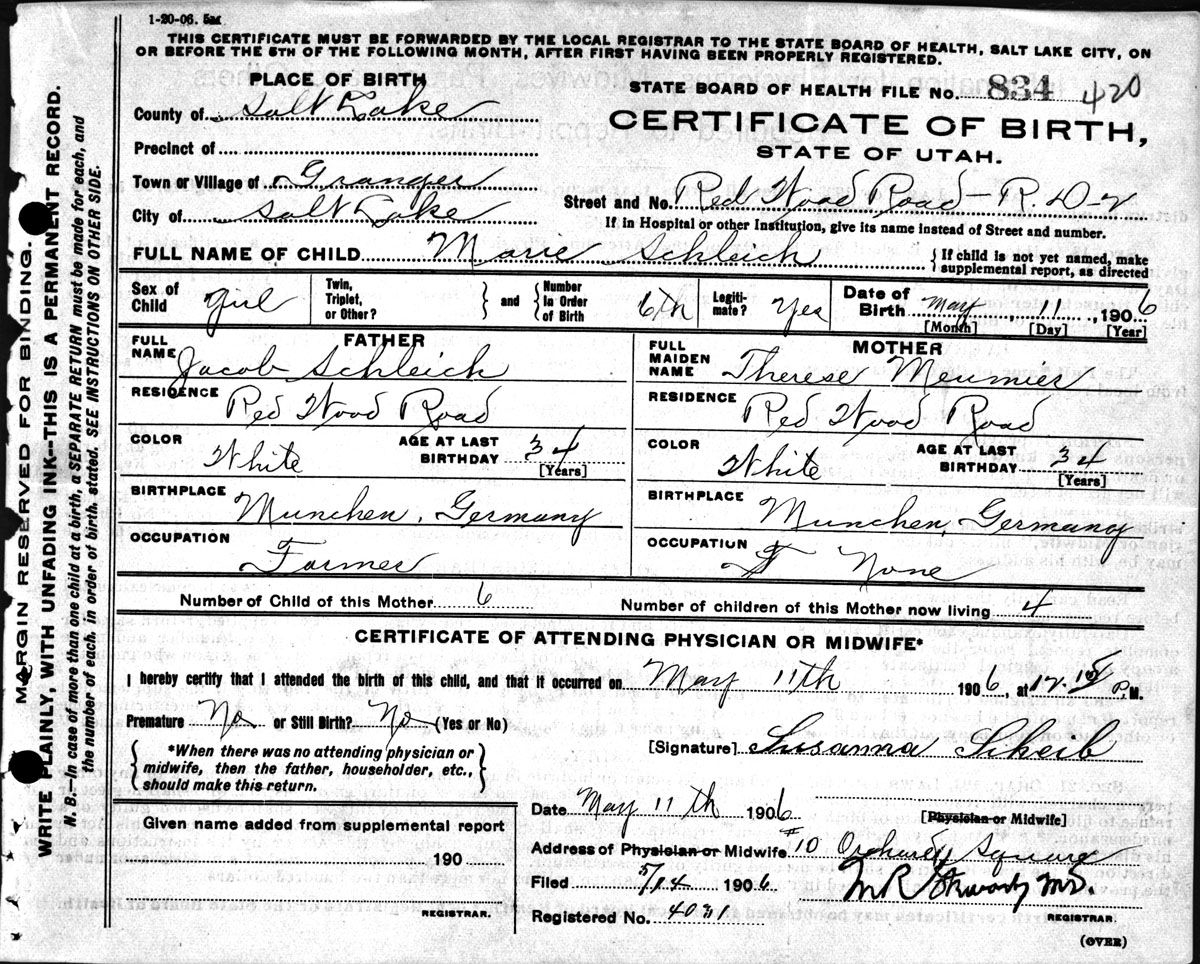 1-20-06. 5M
THIS CERTIFICATE MUST BE FORWARDED BY THE LOCAL REGISTRAR TO THE STATE BOARD OF HEALTH, SALT LAKE CITY, ON
OR BEFORE THE 5TH OF THE FOLLOWING MONTH, AFTER FIRST HAVING BEEN PROPERLY REGISTERED.
PLACE OF BIRTH
STATE BOARD OF HEALTH FILE NO. 834 420
County of Salt Lake
CERTIFICATE OF BIRTH,
Precinct of
STATE OF UTAH.
Town or Village of Granger
Street and No. Red Wood Road - R.D-2
City of Salt Lake
If in Hospital or other Institution, give its name instead of Street and number.
FULL NAME OF CHILD Marie Schleich
If child is not yet named, make
supplemental report, as directed
Sex of Child girl Twin, Triplet, or Other? and Number In Order of Birth 6th Legiti-mate? Yes Date of Birth May 11 1906
[Month] [Day] [Year]
FATHER
MOTHER
FULL NAME Jacob Schleich
FULL MAIDEN NAME Therese Meumier
RESIDENCE Red Wood Road
RESIDENCE Red Wood Road
COLOR White AGE AT LAST BIRTHDAY 34 [Years]
COLOR White AGE AT LAST BIRTHDAY 34 [Years]
BIRTHPLACE Munchen, Germany
BIRTHPLACE Munchen, Germany
OCCUPATION Farmer
OCCUPATION None
Number of Child of this Mother 6
Number of children of this Mother now living 4
CERTIFICATE OF ATTENDING PHYSICIAN OR MIDWIFE*
I hereby certify that I attended the birth of this child, and that it occurred on May 11th 1906, at 12.15 P.M.
Premature No or Still Birth? No (Yes or No)
*When there was no attending physician or
midwife, then the father, householder, etc.,
should make this return.
[Signature] Susanna
Date May 11th 1906
[Physician or Midwife]
Given name added from supplemental report
190
REGISTRAR.
Address of Physician or Midwife #10 Orchard Square
Filed 5/14 1906 M R M.D.
Registered No. 4031
REGISTRAR.
(OVER)
MARGIN RESERVED FOR BINDING.
WRITE PLAINLY, WITH UNFADING INK—THIS IS A PERMANENT RECORD.
N. B.—In case of more than one child at a birth, a SEPARATE RETURN must be made for each, and
the number of each, in order of birth, stated. SEE INSTRUCTIONS ON OTHER SIDE.